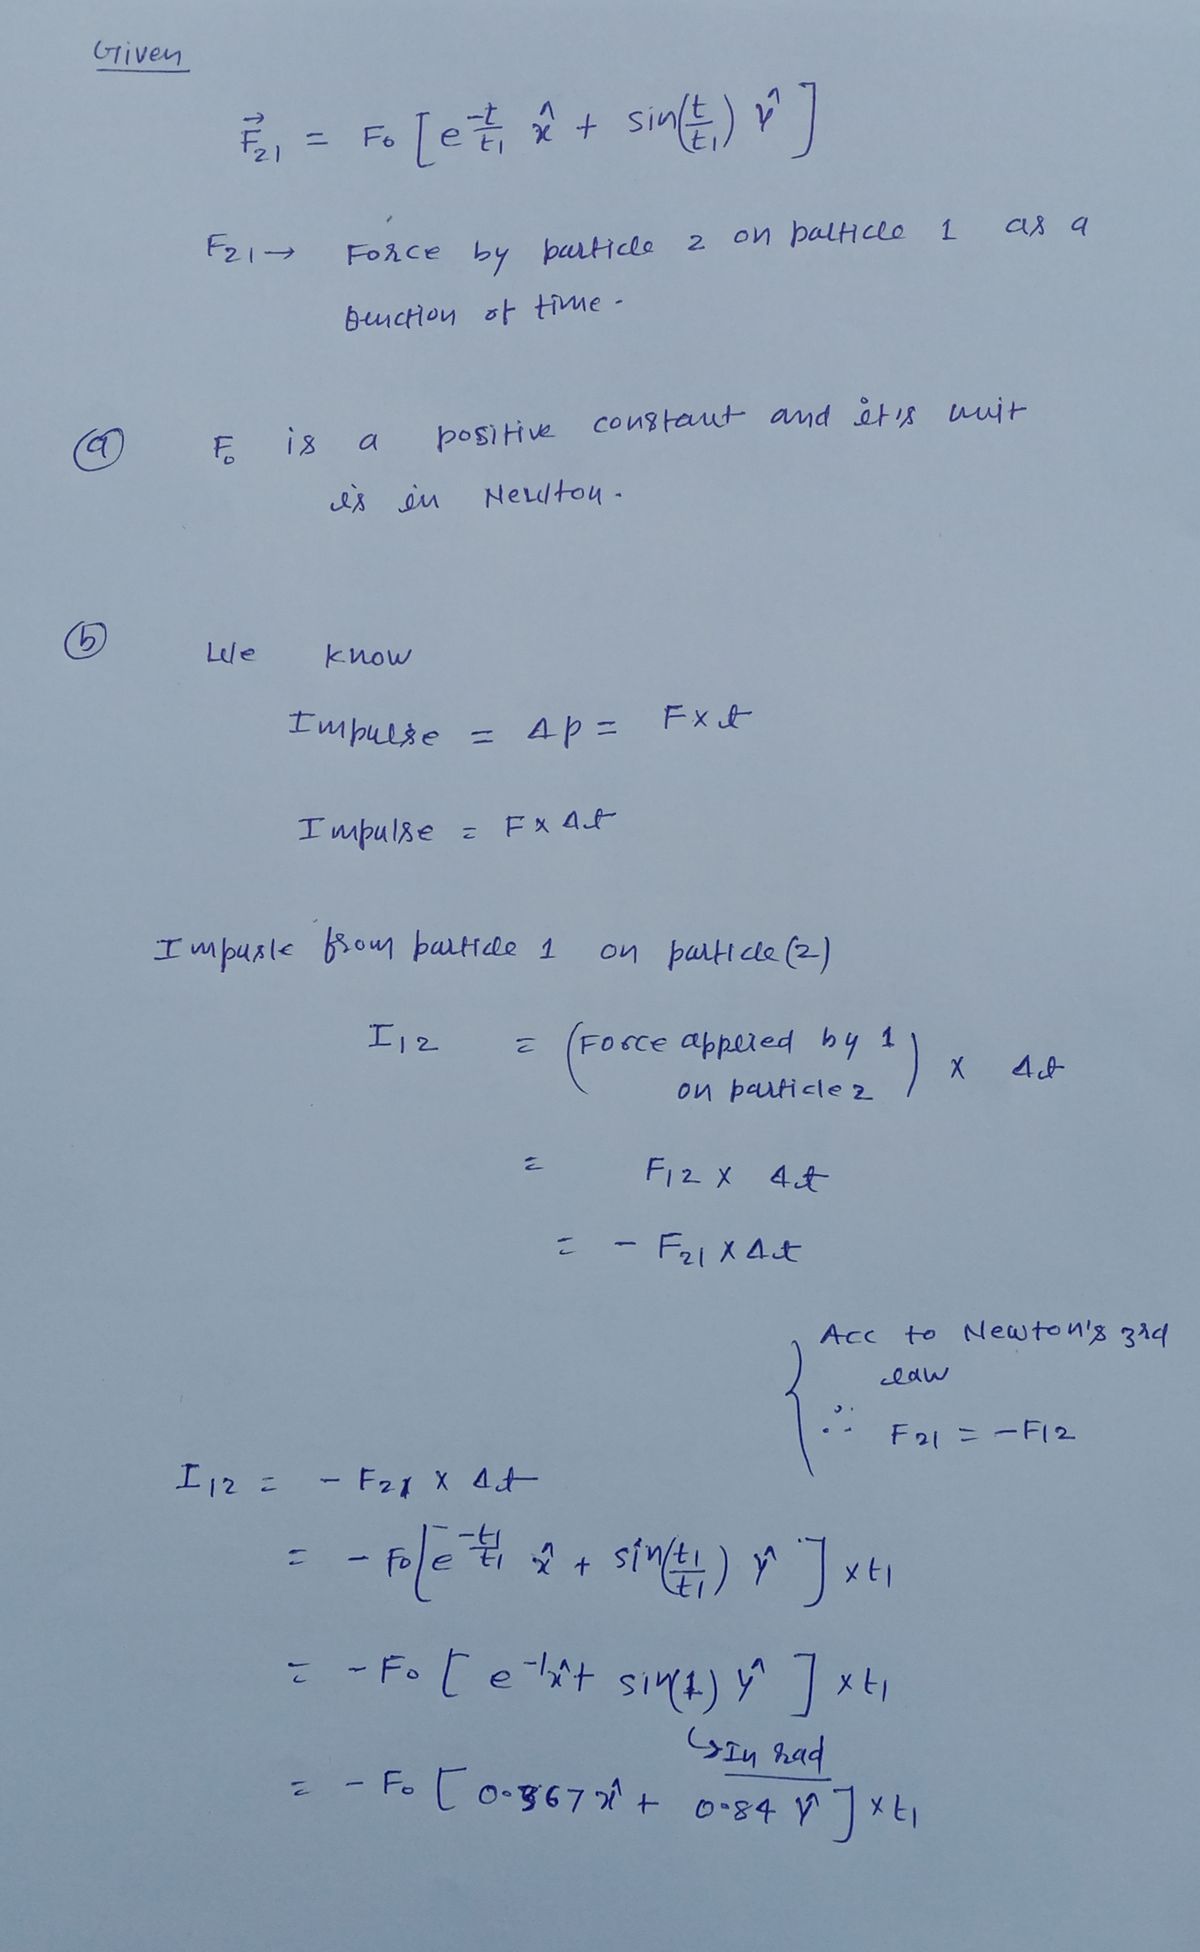 Given
F⃗21 = F0 [e^(-t/t1) x̂ + sin(t/t1) ŷ]
F21 → Force by particle 2 on particle 1 as a
function of time.
(a) F0 is a positive constant and it's unit
is in Newton.
(b) We know
Impulse = Δp = F × t
Impulse = F × Δt
Impusle from particle 1 on particle (2)
I12 = (Force appleied by 1
on particle 2) × Δt
= F12 × Δt
= - F21 × Δt
Acc to Newton's 3rd
law
∴ F21 = -F12
I12 = - F21 × Δt
= - F0 [e^(-t1/t1) x̂ + sin(t1/t1) ŷ] × t1
= - F0 [e^-1 x̂ + sin(1) ŷ] × t1
↳ In rad
= - F0 [0.367 x̂ + 0.84 ŷ] × t1